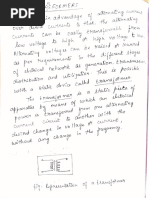 in advantage of alternating current
over direct currents is that the alternating
currents can be easily transformers from
low voltage to high voltage
Alternating voltages can be raised or lowered
as per requirements in the different stages
of electrical network as generation, transmission
distribution and utilization this is possible
with a static device called transformer.
The transformer is a static piece of
apparatus by means of which an electrical
power is transformed from one alternating
current circuit to another with the
desired change in voltage & current,
without any change in the frequency.
fig: Representation of a transformer